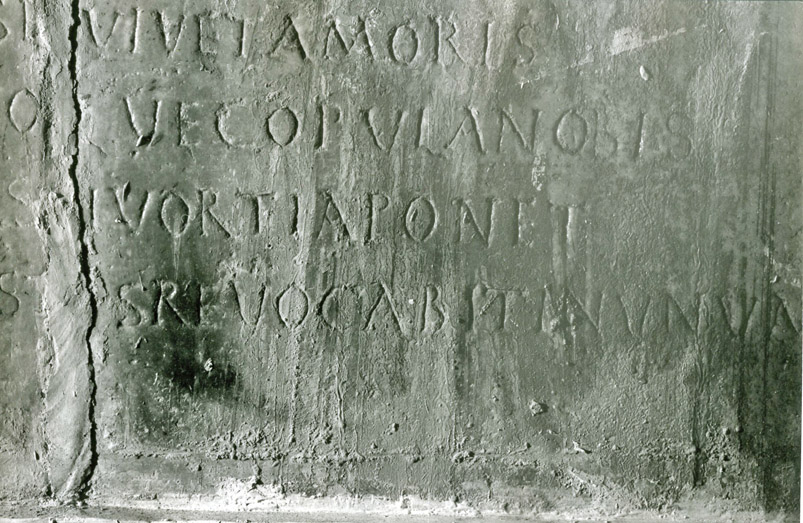 VIVET AMORIS
QVE COPVLA NOBIS
VORTIA PONET
S REVOCABIT IN VNVM